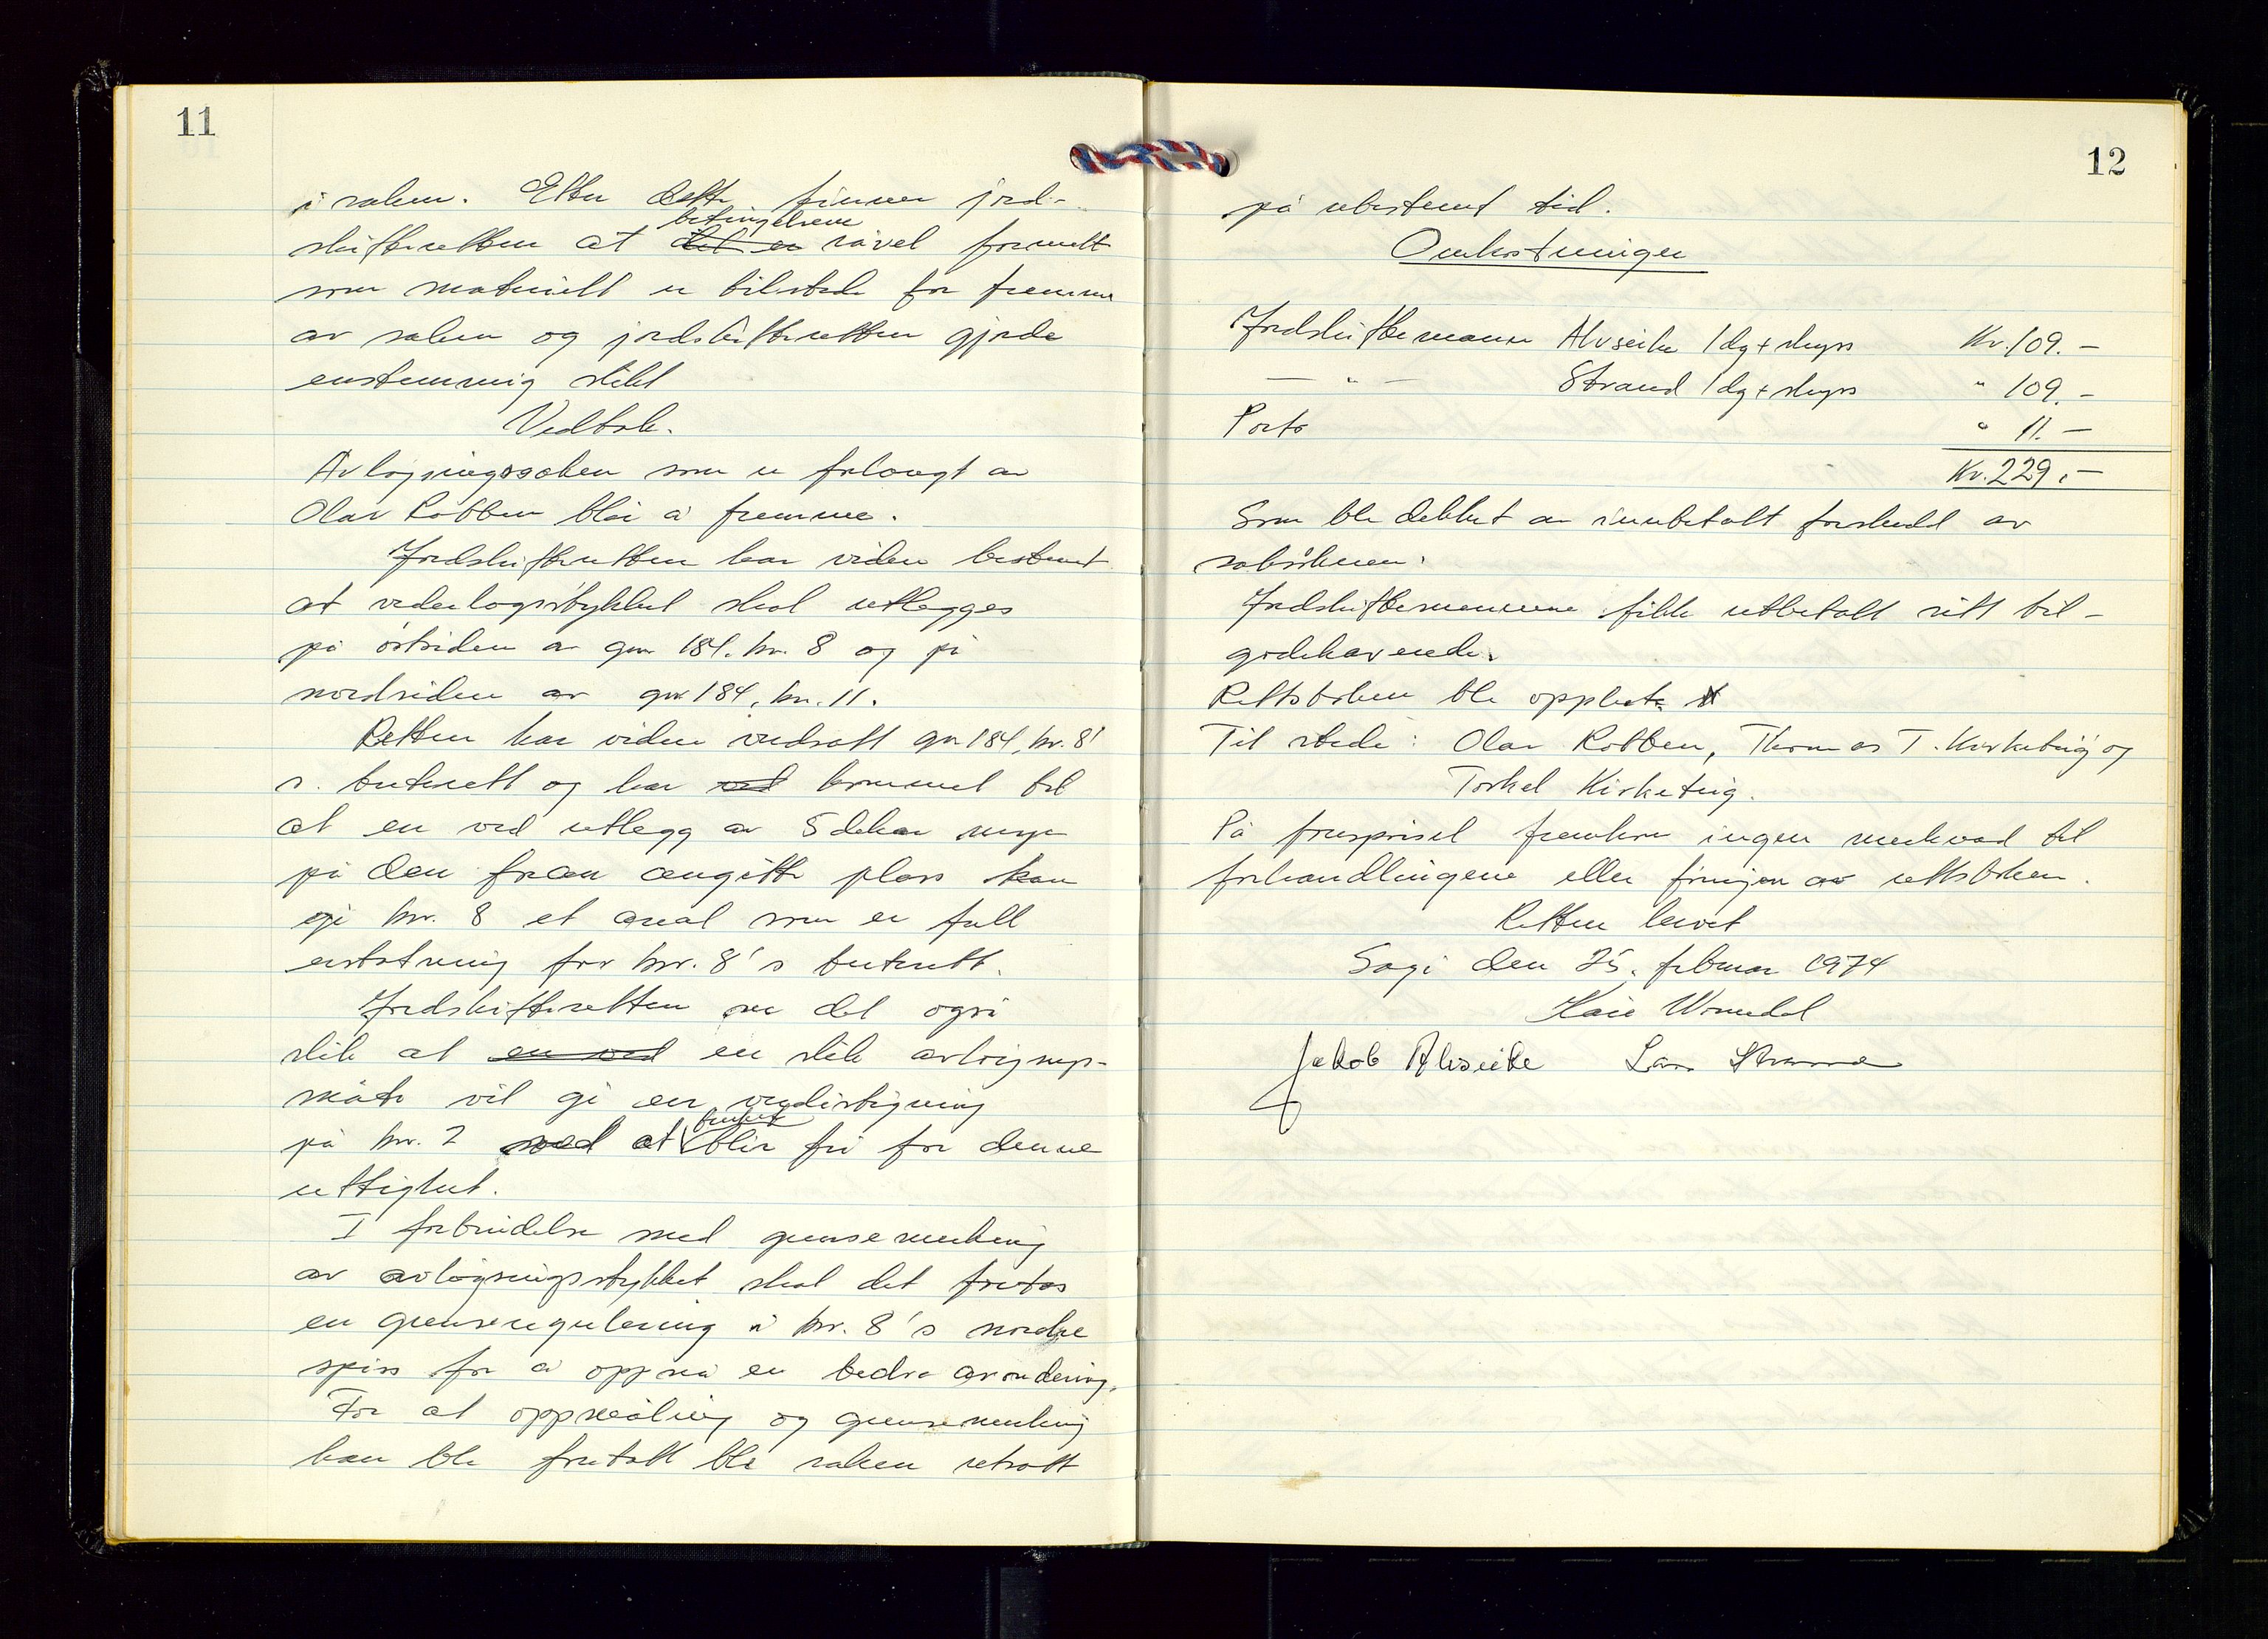 11
i saken. Etter dette finner jord-
skifteretten at betingelsene såvel formelt
som materielt er tilstede for fremme
av saken og jordskifteretten gjorde
enstemmig slikt
Vedtak.
Avløysingssaken som er forlangt av
Olav Robben blir å fremme.
Jordskifteretten har videre bestemt
at vederlagsstykket skal utlegges
på østsiden av gnr 184. bnr. 8 og på
nordsiden av gnr 184, bnr. 11.
Retten har videre verdsatt gnr 184, bnr. 8'
s. beiterett og har kommet til
at en ved utlegg av 5 dekar mye
på den foran angitte plass kan
gi bnr. 8 et areal som er full
erstatning for bnr. 8's beiterett.
Jordskifteretten ser det også
slik at en slik avløysings-
måte vil gi en verdistigning
på bnr. 2 ved at bruket blir fri for denne
rettighet.
I forbindelse med grensemerking
av avløysingsstykket skal det foretas
en grenseregulering i bnr. 8's nordre
spiss for å oppnå en bedre avrundering.
For at oppmåling og grensemerking
kan ble foretatt ble saken utsatt
12
på ubestemt tid.
Omkostninger
Jordskiftemann Alvseike 1 dg + skyss Kr. 109.-
— " — Strand 1 dg + skyss " 109.-
Porto " 11.-
Kr. 229.-
Som ble dekket av innbetalt forskudd av
saksøkeren.
Jordskiftemennene fikk utbetalt sitt til-
godehavende.
Rettsboken ble opplest
Til stede: Olav Robben, Thomas T. Kirketeig og
Torkel Kirketeig.
På forespørsel fremkom ingen merknad til
forhandlingene eller føringen av rettsboken.
Retten hevet
Sagi den 25. februar 1974
Kåre Womdal
Jakob Alvseike Lars Strand